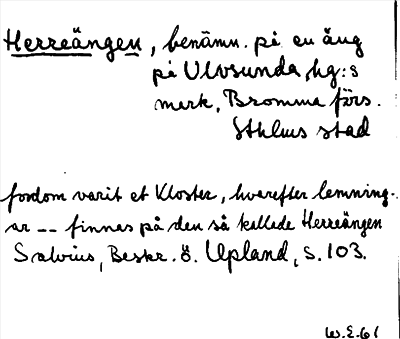 Herreängen, benämn. på en äng
på Ulvsunda, hg:s
mark, Bromma förs.
Sthlms stad
fordom varit et Kloster, hvarefter lemning-
ar -- finnas på den så kallade Herreängen
Salvius, Beskr. ö. Upland, S. 103.
W.E.61